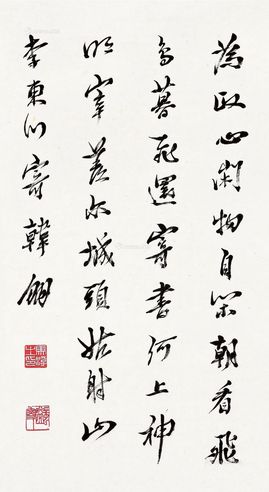 為政心閑物自閑朝看飛
鳥暮飛還寄書河上神
明宰羨尔城頭姑射山
李東川寄韓鵬